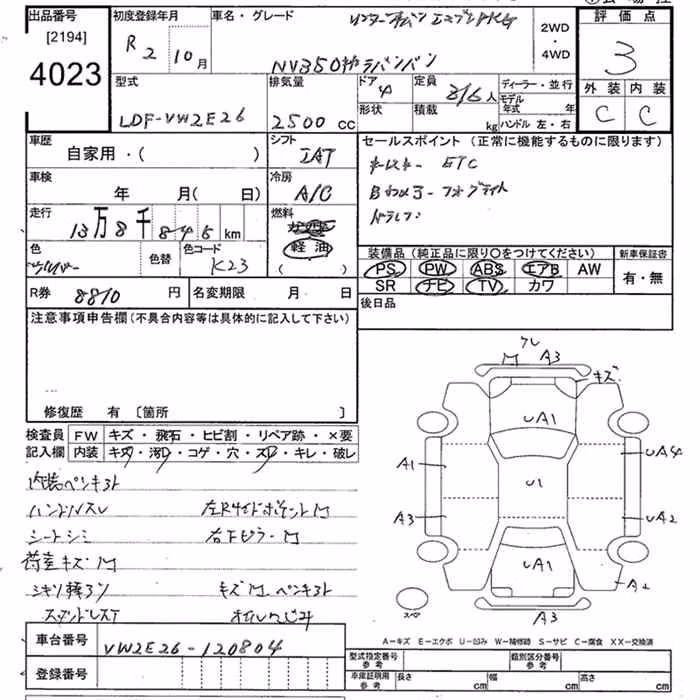 出品番号
[2194]
4023
初度登録年月
R 2 10月
車名・グレード
NV350キャラバンバン
2WD
・
4WD
評価点
3
外装 内装
C C
型式
LDF-VW2E26
排気量
2500 CC
ドア
4
形状
定員
3/6人
積載
kg
ディーラー・並行
モデル年式 年
ハンドル 左・右
車歴
自家用・( )
シフト
IAT
セールスポイント(正常に機能するものに限ります)
キーレスキー ETC
車検
年 月( 日)
冷房
A/C
走行
13万8千845km
燃料
軽油
( )
色
シルバー
色替
色コード
K23
装備品(純正品に限り○をつけてください)
PS PW ABS エアB AW
SR ナビ TV カワ
新車保証書
有・無
R券 8810 円
名変期限 月 日
後日品
注意事項申告欄(不具合内容等は具体的に記入して下さい)
修復歴 有 [箇所 ]
検査員 FW キズ・飛石・ヒビ割・リペア跡・×要
記入欄 内装 キズ・汚れ・コゲ・穴・スレ・キレ・破レ
内装ペンキヨト
ハンドルスレ
シートシミ 右下ピラーM
荷室キズM
キズM ペンキヨト
M A3
キズ
UA1
A1
UA4
U1
A3
UA2
UA1
A2
スペア
A3
A-キズ E-エクボ U-凹み W-補修跡 S-サビ C-腐食 XX-交換済
車台番号 VW2E26-120804
登録番号
型式指定番号 参考
類別区分番号 参考
車庫証明用 参考 長さ cm 幅 cm 高さ cm